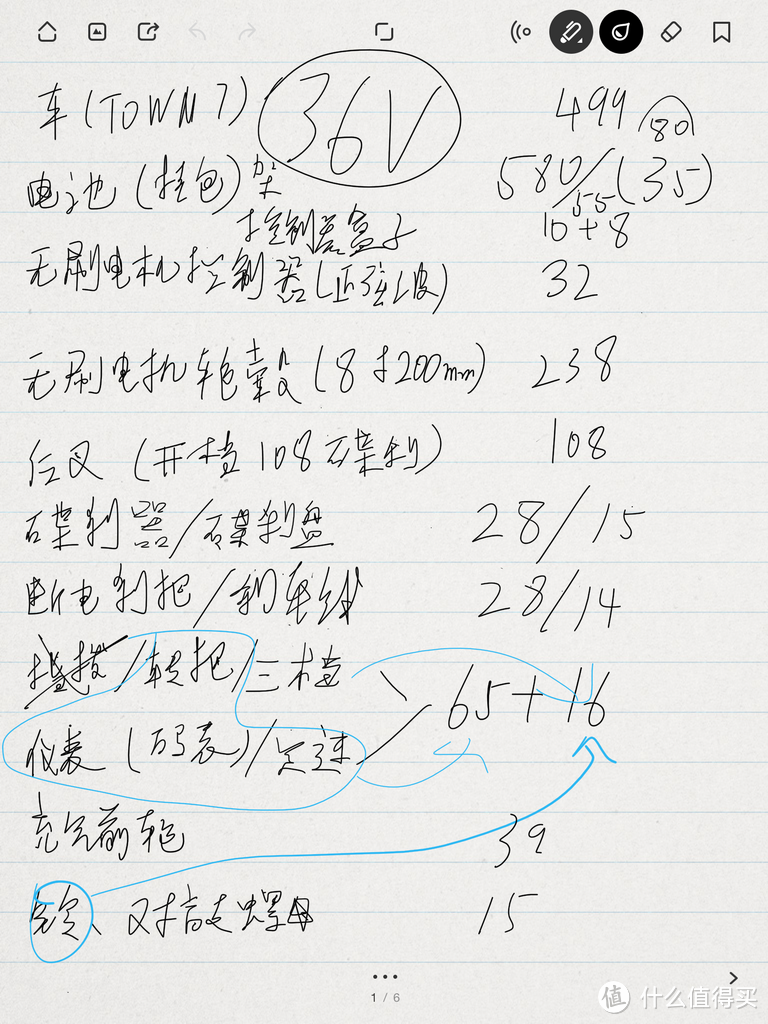 车(TOWN 7) 36V 499 80
电池(挂包)架 580/55(35)
控制器盒子 10+8
无刷电机控制器(正弦波) 32
无刷电机轮毂(8寸200mm) 238
后叉(开档108碟刹) 108
碟刹器/碟刹盘 28/15
断电刹把/刹车线 28/14
指拨/转把/三档 65+16
仪表(码表)/定速
充气前轮 39
、对敲螺母 15
1 / 6
值 什么值得买